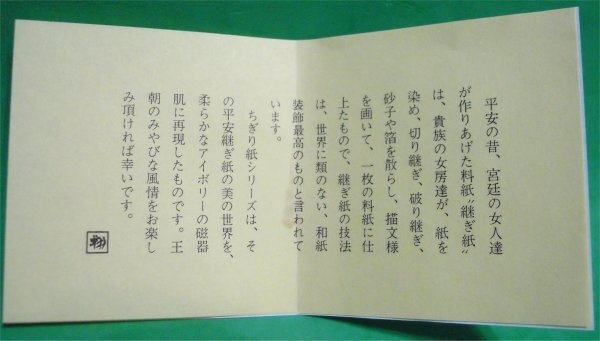 平安の昔、宮廷の女人達
が作りあげた料紙〝継ぎ紙〟
は、貴族の女房達が、紙を
染め、切り継ぎ、破り継ぎ、
砂子や箔を散らし、描文様
を画いて、一枚の料紙に仕
上たもので、継ぎ紙の技法
は、世界に類のない、和紙
装飾最高のものと言われて
います。
ちぎり紙シリーズは、そ
の平安継ぎ紙の美の世界を、
柔らかなアイボリーの磁器
肌に再現したものです。王
朝のみやびな風情をお楽し
み頂ければ幸いです。